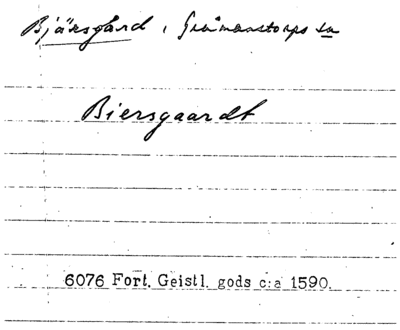 Bjärsgård, Gråmanstorps sn
Biersgaardt
6076 Fort. Geistl. gods c:a 1590.